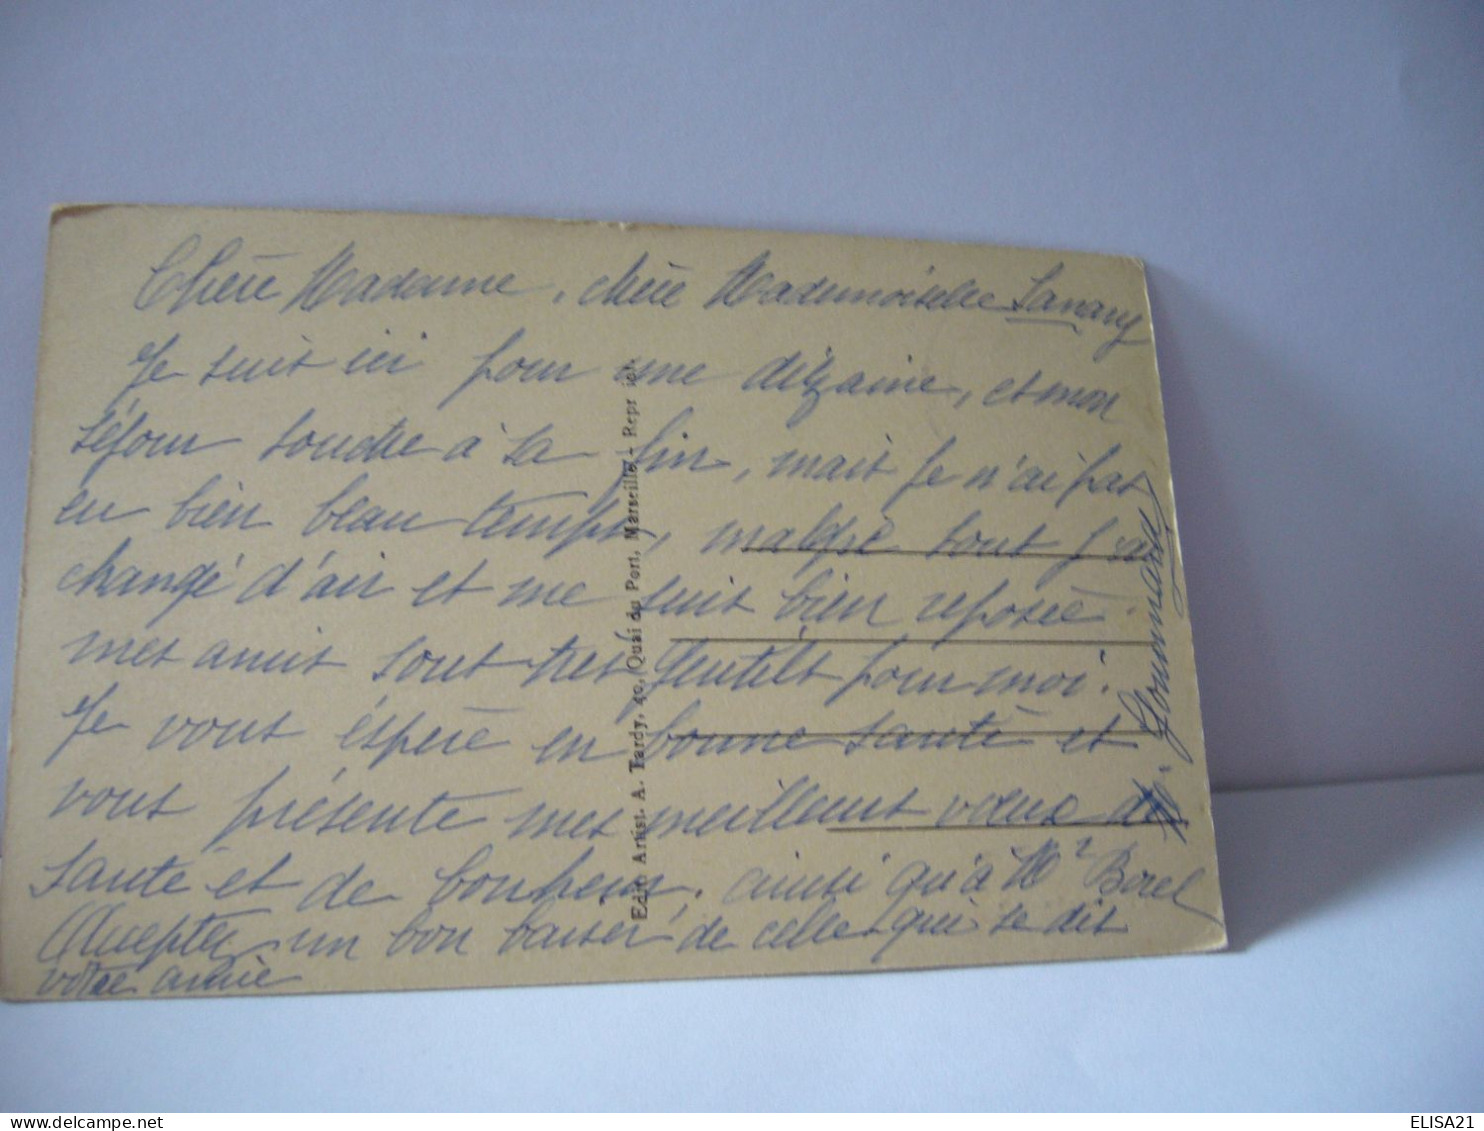 Chère Madame, chère Mademoiselle Sanary
Je suis ici pour une dizaine, et mon
séjour touche à sa fin, mais je n'ai pas
eu bien beau temps, malgré tout j'ai
changé d'air et me suis bien reposée.
mes amis sont très gentils pour moi.
Je vous éspère en bonne santé et
vous présente mes meilleurs vœux de
santé et de bonheur, ainsi qu'à Mr Borel
Acceptez un bon baiser de celle qui se dit
votre amie
Edit. Artist. A. Tardy, 40, Quai du Port, Marseille - Repr. int.
ELISA21